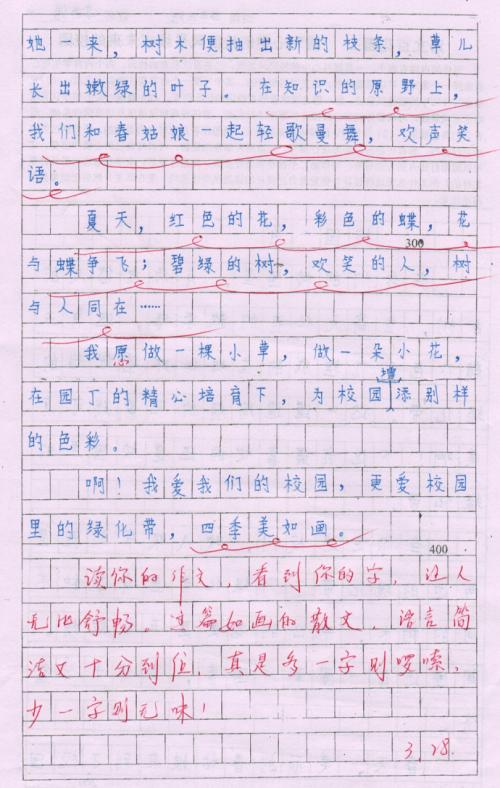 她一来，树木便抽出新的枝条，草儿
长出嫩绿的叶子。在知识的原野上，
我们和春姑娘一起轻歌曼舞，欢声笑
语。
夏天，红色的花，彩色的蝶，花
300
与蝶争飞；碧绿的树，欢笑的人，树
与人同在……
我愿做一棵小草，做一朵小花，
在园丁的精心培育下，为校园增添别样
的色彩。
啊！我爱我们的校园，更爱校园
里的绿化带，四季美如画。
400
读你的作文，看到你的字，让人
无比舒畅。这篇如画的散文，语言简
洁又十分到位，真是多一字则啰嗦，
少一字则无味！
3.28.